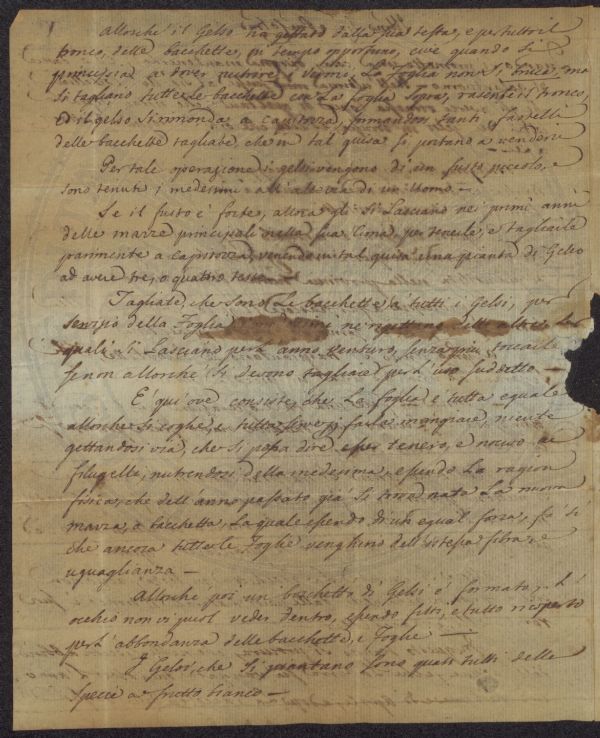 Allorchè il Gelso ha gettato dalla sua testa, e per tutto il
tronco, delle bacchette, in tempo opportuno, cioè quando si
principia a dover nutrire i Vermi, La Foglia non si bruca, ma
Si tagliano tutte le bacchette con La foglia sopra, rasente il tronco,
ed il gelso si rimonda a capitozza, formandosi tanti fastelli
delle bacchette tagliate, che in tal guisa si portano a vendere
Per tale operazione i gelsi vengono di un fusto piccolo, e
sono tenuti i medesimi all'altezza di un Uomo. —
Se il fusto è forte, allora gli si Lasciano nei primi anni
delle marze principali nella sua Cima, per tenerle, e tagliarle
parimente a capitozza, venendo in tal guisa una pianta di Gelso
ad avere tre, o quattro teste.
Tagliate, che sono Le bacchette à tutti i Gelsi, per
servizio della Foglia ne ributtano dell'altre, Le
quali si Lasciano per l'anno venturo, senza più toccarle
se non allorchè si devono tagliare per l'uso suddetto —
E qui ove consiste, che La foglia è tutta eguale
allorchè si coglie, e tutta si può farla mangiare, niente
gettandosi via, che si possa dire esser tenero, e nocivo ai
filugelli, nutrendosi della medesima, essendo La ragion
fisica, che dell'anno passato già si trova nata La nuova
marza, o bacchetta, La quale essendo di un egual forza, fa si
che ancora tutte le Foglie venghino dell'istessa fibra, e
uguaglianza —
Allorchè poi un boschetto di Gelsi è formato, L'
occhio non vi puol veder dentro, essendo fitti, e tutto
per l'abbondanza delle bacchette, e foglie —
I Gelsi, che si piantano sono quasi tutti della
Specie a frutto bianco —